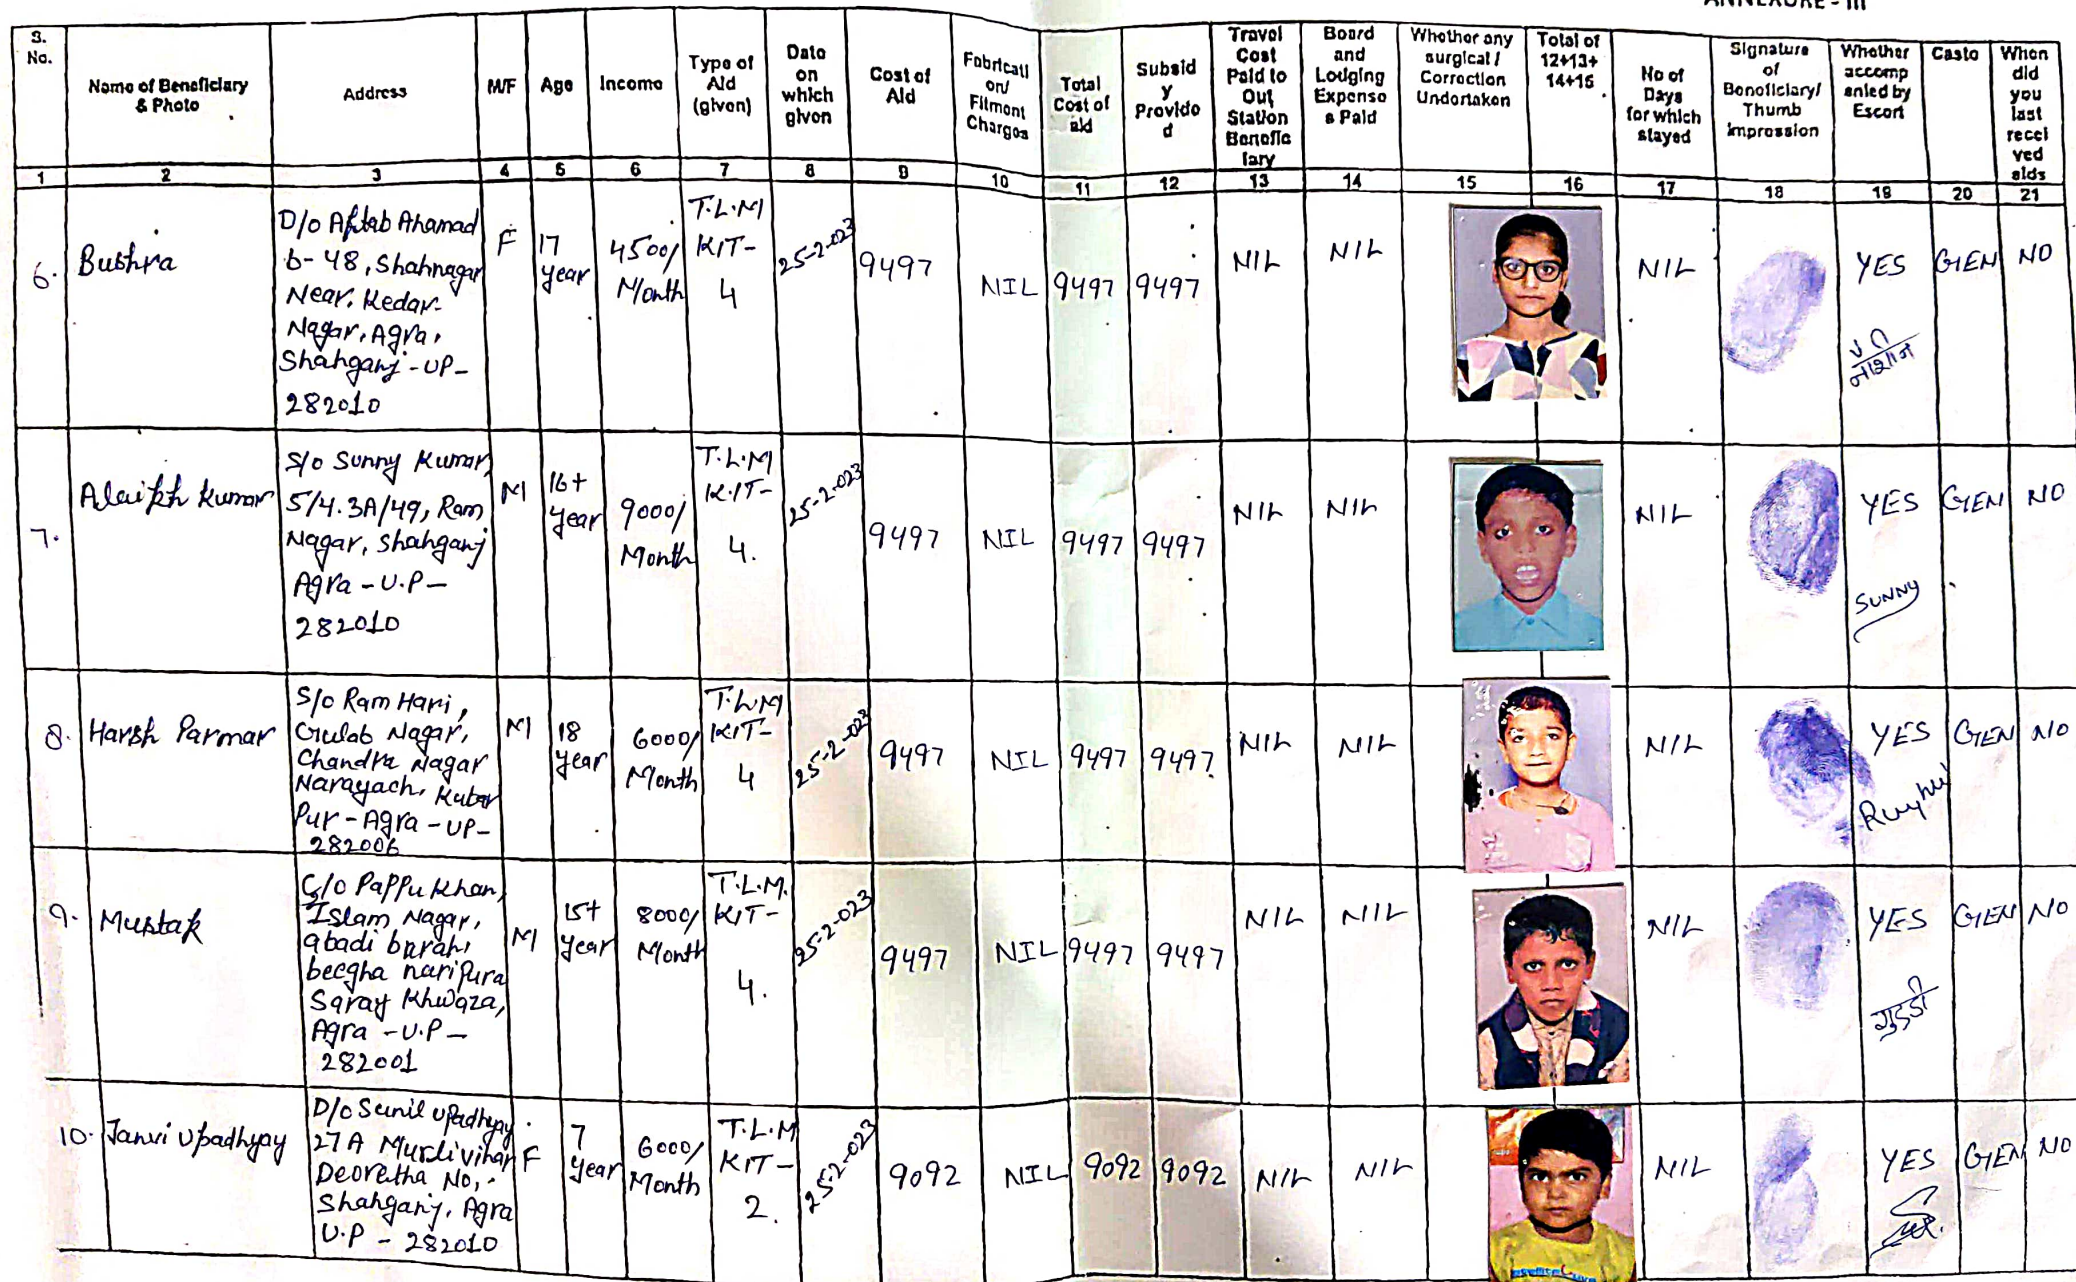 ANNEXURE - III
S. No.
Name of Beneficiary & Photo
Address
M/F
Age
Income
Type of Aid (given)
Date on which given
Cost of Aid
Fabricati on/ Fitment Charges
Total Cost of aid
Subsid y Provide d
Travel Cost Paid to Out Station Benefic iary
Board and Lodging Expense s Paid
Whether any surgical / Correction Undertaken
Total of 12+13+ 14+15
No of Days for which stayed
Signature of Beneficiary/ Thumb impression
Whether accomp anied by Escort
Caste
When did you last recei ved aids
1 2 3 4 5 6 7 8 9 10 11 12 13 14 15 16 17 18 19 20 21
6. Bushra
D/o Aftab Ahamad
b-48, Shahnagar
Near. Kedar-
Nagar, Agra,
Shahganj - UP-
282010
F
17 year
4500/ Month
T.L.M KIT- 4
25-2-023
9497
NIL
9497
9497
NIL
NIL
NIL
YES
GEN
NO
7. Alaikh Kumar
S/o Sunny Kumar,
5/4.3A/49, Ram
Nagar, Shahganj
Agra - U.P-
282010
M
16+ year
9000/ Month
T.L.M KIT- 4.
25-2-023
9497
NIL
9497
9497
NIL
NIL
NIL
YES
SUNNY
GEN
NO
8. Harsh Parmar
S/o Ram Hari,
Gulab Nagar,
Chandra Nagar
Narayach, Kuber
Pur - Agra - UP-
282006
M
18 year
6000/ Month
T.L.M KIT- 4
25-2-023
9497
NIL
9497
9497
NIL
NIL
NIL
YES
GEN
NO
9. Mustak
C/o Pappu Khan,
Islam Nagar,
abadi barah,
beegha naripura
Saray Khwaza,
Agra - U.P-
282001
M
15+ year
8000/ Month
T.L.M. KIT- 4.
25-2-023
9497
NIL
9497
9497
NIL
NIL
NIL
YES
गुड्डी
GEN
NO
10. Janvi Upadhyay
D/o Sunil Upadhyay
27A Murlivihar
Deoretha No,
Shahganj, Agra
U.P - 282010
F
7 year
6000/ Month
T.L.M KIT- 2.
25-2-023
9092
NIL
9092
9092
NIL
NIL
NIL
YES
GEN
NO